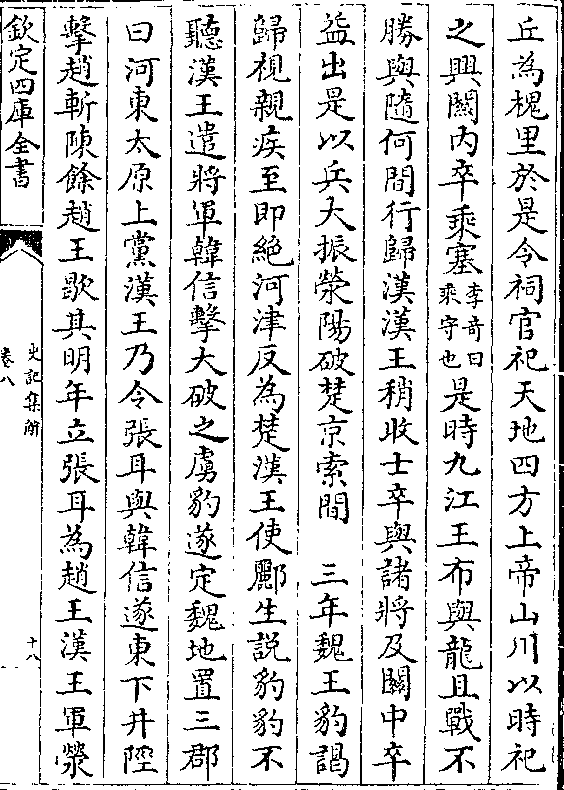 丘為槐里於是令祠官祀天地四方上帝山川以時祀
之興關内卒乘塞李奇曰乘守也是時九江王布與龍且戰不
勝與隨何間行歸漢漢王稍收士卒與諸將及關中卒
益出是以兵大振滎陽破楚京索間　三年魏王豹謁
歸視親疾至即絶河津反為楚漢王使酈生説豹豹不
聽漢王遣將軍韓信擊大破之虜豹遂定魏地置三郡
曰河東太原上黨漢王乃令張耳與韓信遂東下井陘
擊趙斬陳餘趙王歇其明年立張耳為趙王漢王軍滎
欽定四庫全書
史記集解
卷八
十八